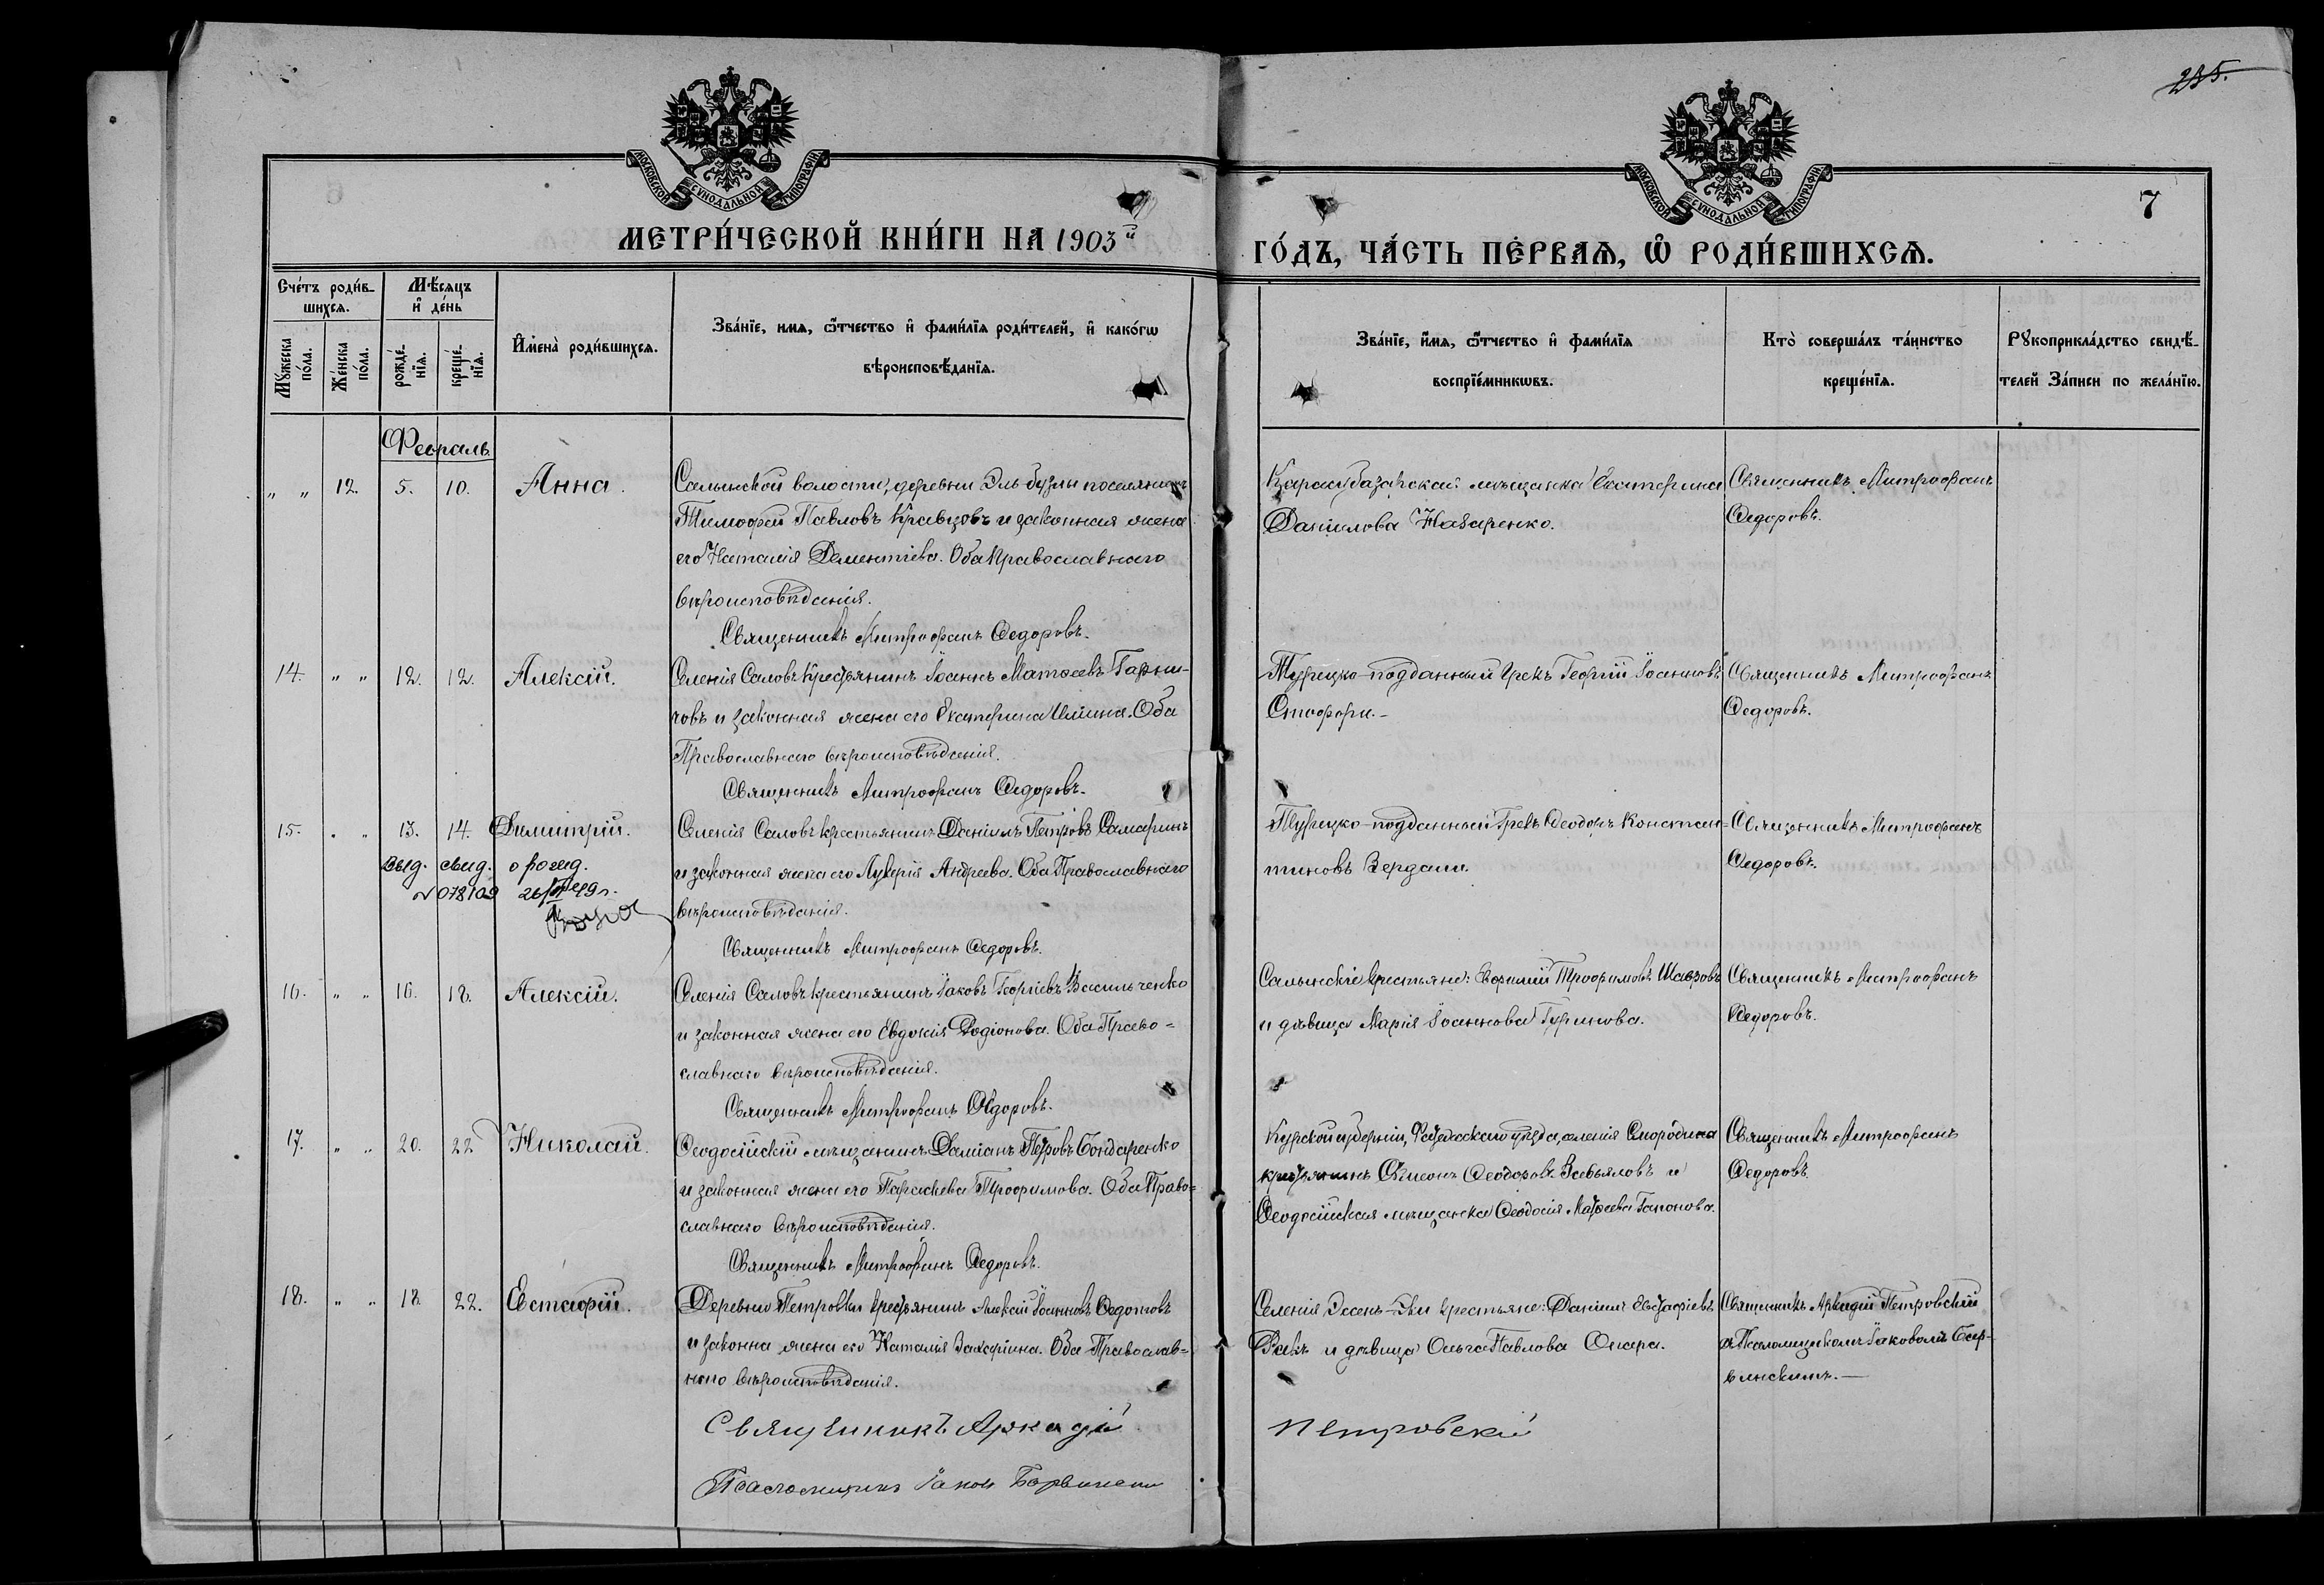 235.
МОСКОВСКОЙ СѴНОДАЛЬНОЙ ТИПОГРАФІИ
МОСКОВСКОЙ СѴНОДАЛЬНОЙ ТИПОГРАФІИ
7
МЕТРИ́ЧЕСКОЙ КНИ́ГИ НА 1903й
ГО́ДЪ, ЧА́СТЬ ПЕ́РВАѦ, Ѡ҆ РОДИ́ВШИХСѦ.
Сче́тъ роди́в-
шихсѧ.
Мѣ́сѧцъ
и҆ де́нь
Мꙋ́жеска по́ла.
Же́нска по́ла.
рожде́-нїѧ.
креще́-нїѧ.
И҆мена̀ роди́вшихсѧ.
Зва́нїе, имѧ, ѻ҆́тчество и҆ фами́лїѧ роди́телей, и҆ како́гѡ
вѣроисповѣ́данїѧ.
Зва́нїе, и҆́мѧ, ѻ҆́тчество и҆ фами́лїѧ
воспрїе́мникѡвъ.
Кто̀ соверша́лъ та́инство
креще́нїѧ.
Рꙋкоприкла́дство свидѣ́-
телей За́писи по жела́нїю.
Февраль
„ „ 12. 5. 10. Анна.
Салынской волости, деревни Эль-бузлы поселянинъ
Тимофей Павловъ Кравцовъ и законная жена
его Наталія Дементіева. Оба Православнаго
вѣроисповѣданія.
Священникъ Митрофанъ Федоровъ.
Карасубазарская мѣщанка Екатерина
Даніилова Назаренко.
Священникъ Митрофанъ
Федоровъ.
14. „ „ 12. 12. Алексій.
Селенія Саловъ крестьянинъ Іоаннъ Матѳеевъ
и законная жена его Екатерина Ильина. Оба
Православнаго вѣроисповѣданія.
Священникъ Митрофанъ Федоровъ.
Турецко-подданный Грекъ Георгій Іоанновъ
Священникъ Митрофанъ
Федоровъ.
15. „ „ 13. 14. Димитрій.
Выд. свид. о рожд.
N 078109
Селенія Саловъ крестьянинъ Даніилъ Петровъ Самаринъ
и законная жена его Лукерія Андреева. Оба Православнаго
вѣроисповѣданія.
Священникъ Митрофанъ Федоровъ.
Турецко-подданный Грекъ Феодоръ Констан-
тиновъ Зердали.
Священникъ Митрофанъ
Федоровъ.
16. „ „ 16. 18. Алексій.
Селенія Саловъ крестьянинъ Іаковъ Георгіевъ Васильченко
и законная жена его Евдокія Родіонова. Оба Право-
славнаго вѣроисповѣданія.
Священникъ Митрофанъ Федоровъ.
Салынскіе крестьяне: Ефимій Трофимовъ
и дѣвица Марія Іоаннова Гуринова.
Священникъ Митрофанъ
Федоровъ.
17. „ „ 20. 22 Николай.
Феодосійскій мѣщанинъ Даміанъ Петровъ Бондаренко
и законная жена его Параскева Трофимова. Оба Право-
славнаго вѣроисповѣданія.
Священникъ Митрофанъ Федоровъ.
Курской губерніи, уѣзда, селенія Смородина
крестьянинъ Симеонъ Феодоровъ Завьяловъ и
Феодосійская мѣщанка Феодосія Матѳеева Гапонова.
Священникъ Митрофанъ
Федоровъ.
18. „ „ 18. 22. Евстафій.
Деревни Петровки крестьянинъ Алексій Іоанновъ Федотовъ
и законна жена его Наталія Захаріина. Оба Православ-
наго вѣроисповѣданія.
Священникъ Аркадій
Петровскій
Псаломщикъ Іаковъ
Селенія Эссенъ-Эли крестьяне: Даніилъ Евстафіевъ
и дѣвица Ольга Павлова
Священникъ Аркадій Петровскій
съ Псаломщикомъ Іаковомъ Бар-
винскимъ.